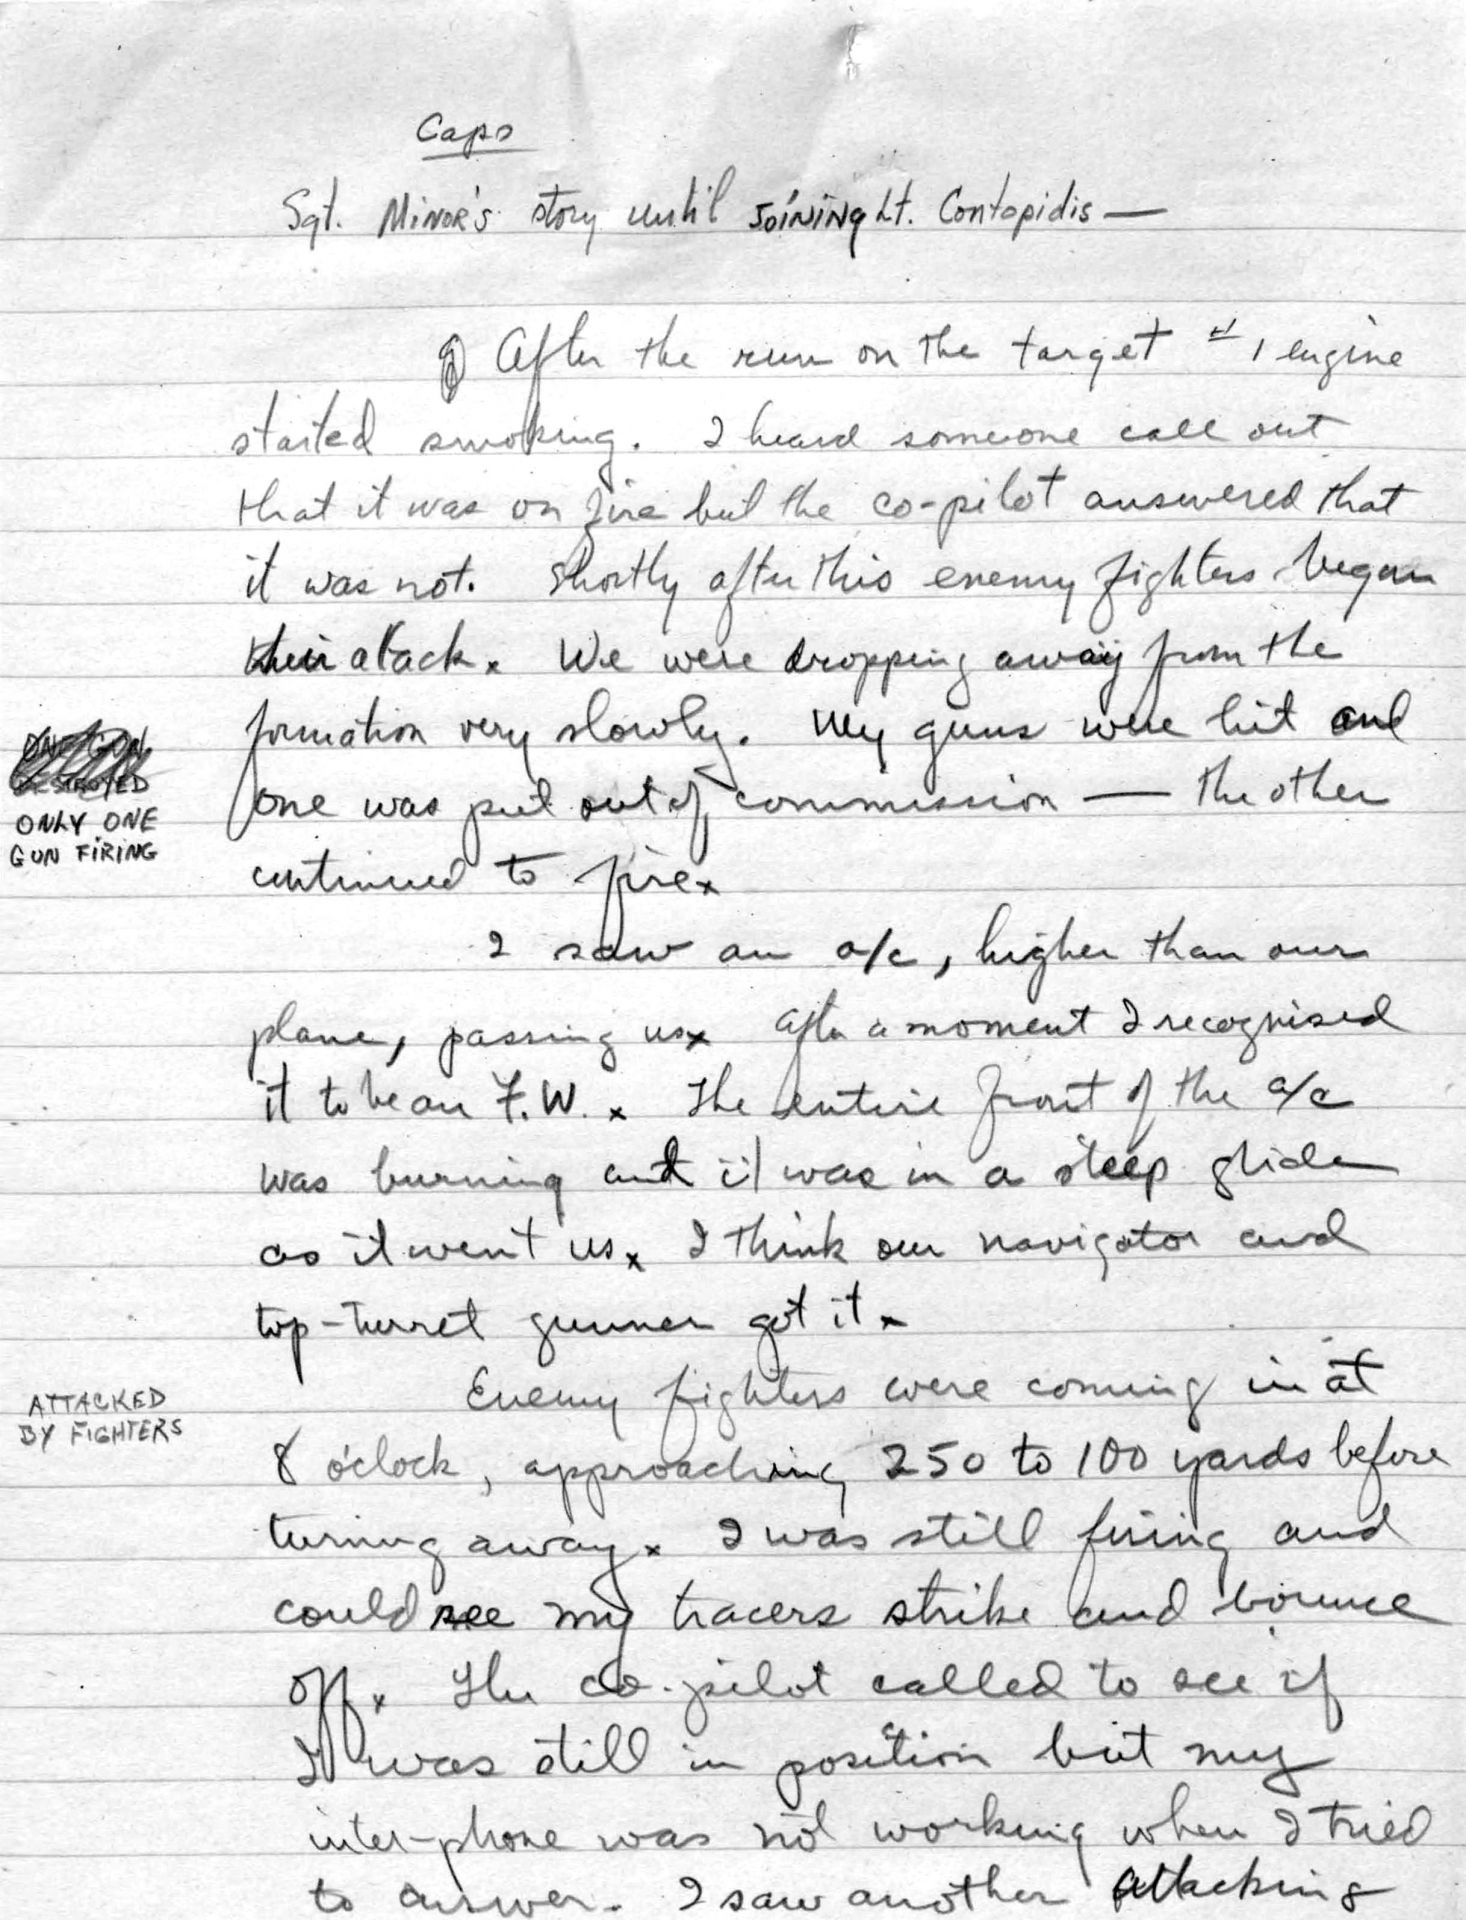 Caps
Sgt. Minor's story until joining Lt. Contopidis —
After the run on the target #1 engine
started smoking. I heard someone call out
that it was on fire but the co-pilot answered that
it was not. Shortly after this enemy fighters began
their atack. We were dropping away from the
formation very slowly. My guns were hit and
ONLY ONE
GUN FIRING
one was put out of commission — the other
continued to fire.
I saw an a/c, higher than our
plane, passing us. After a moment I recognised
it to be an F.W.. The entire front of the a/c
was burning and it was in a steep glide
as it went us. I think our navigator and
top-turret gunner got it.
ATTACKED
BY FIGHTERS
Enemy fighters were coming in at
8 o'clock, approaching 250 to 100 yards before
turning away. I was still firing and
could see my tracers strike and bounce
off. The co-pilot called to see if
I was still in position but my
inter-phone was not working when I tried
to answer. I saw another attacking